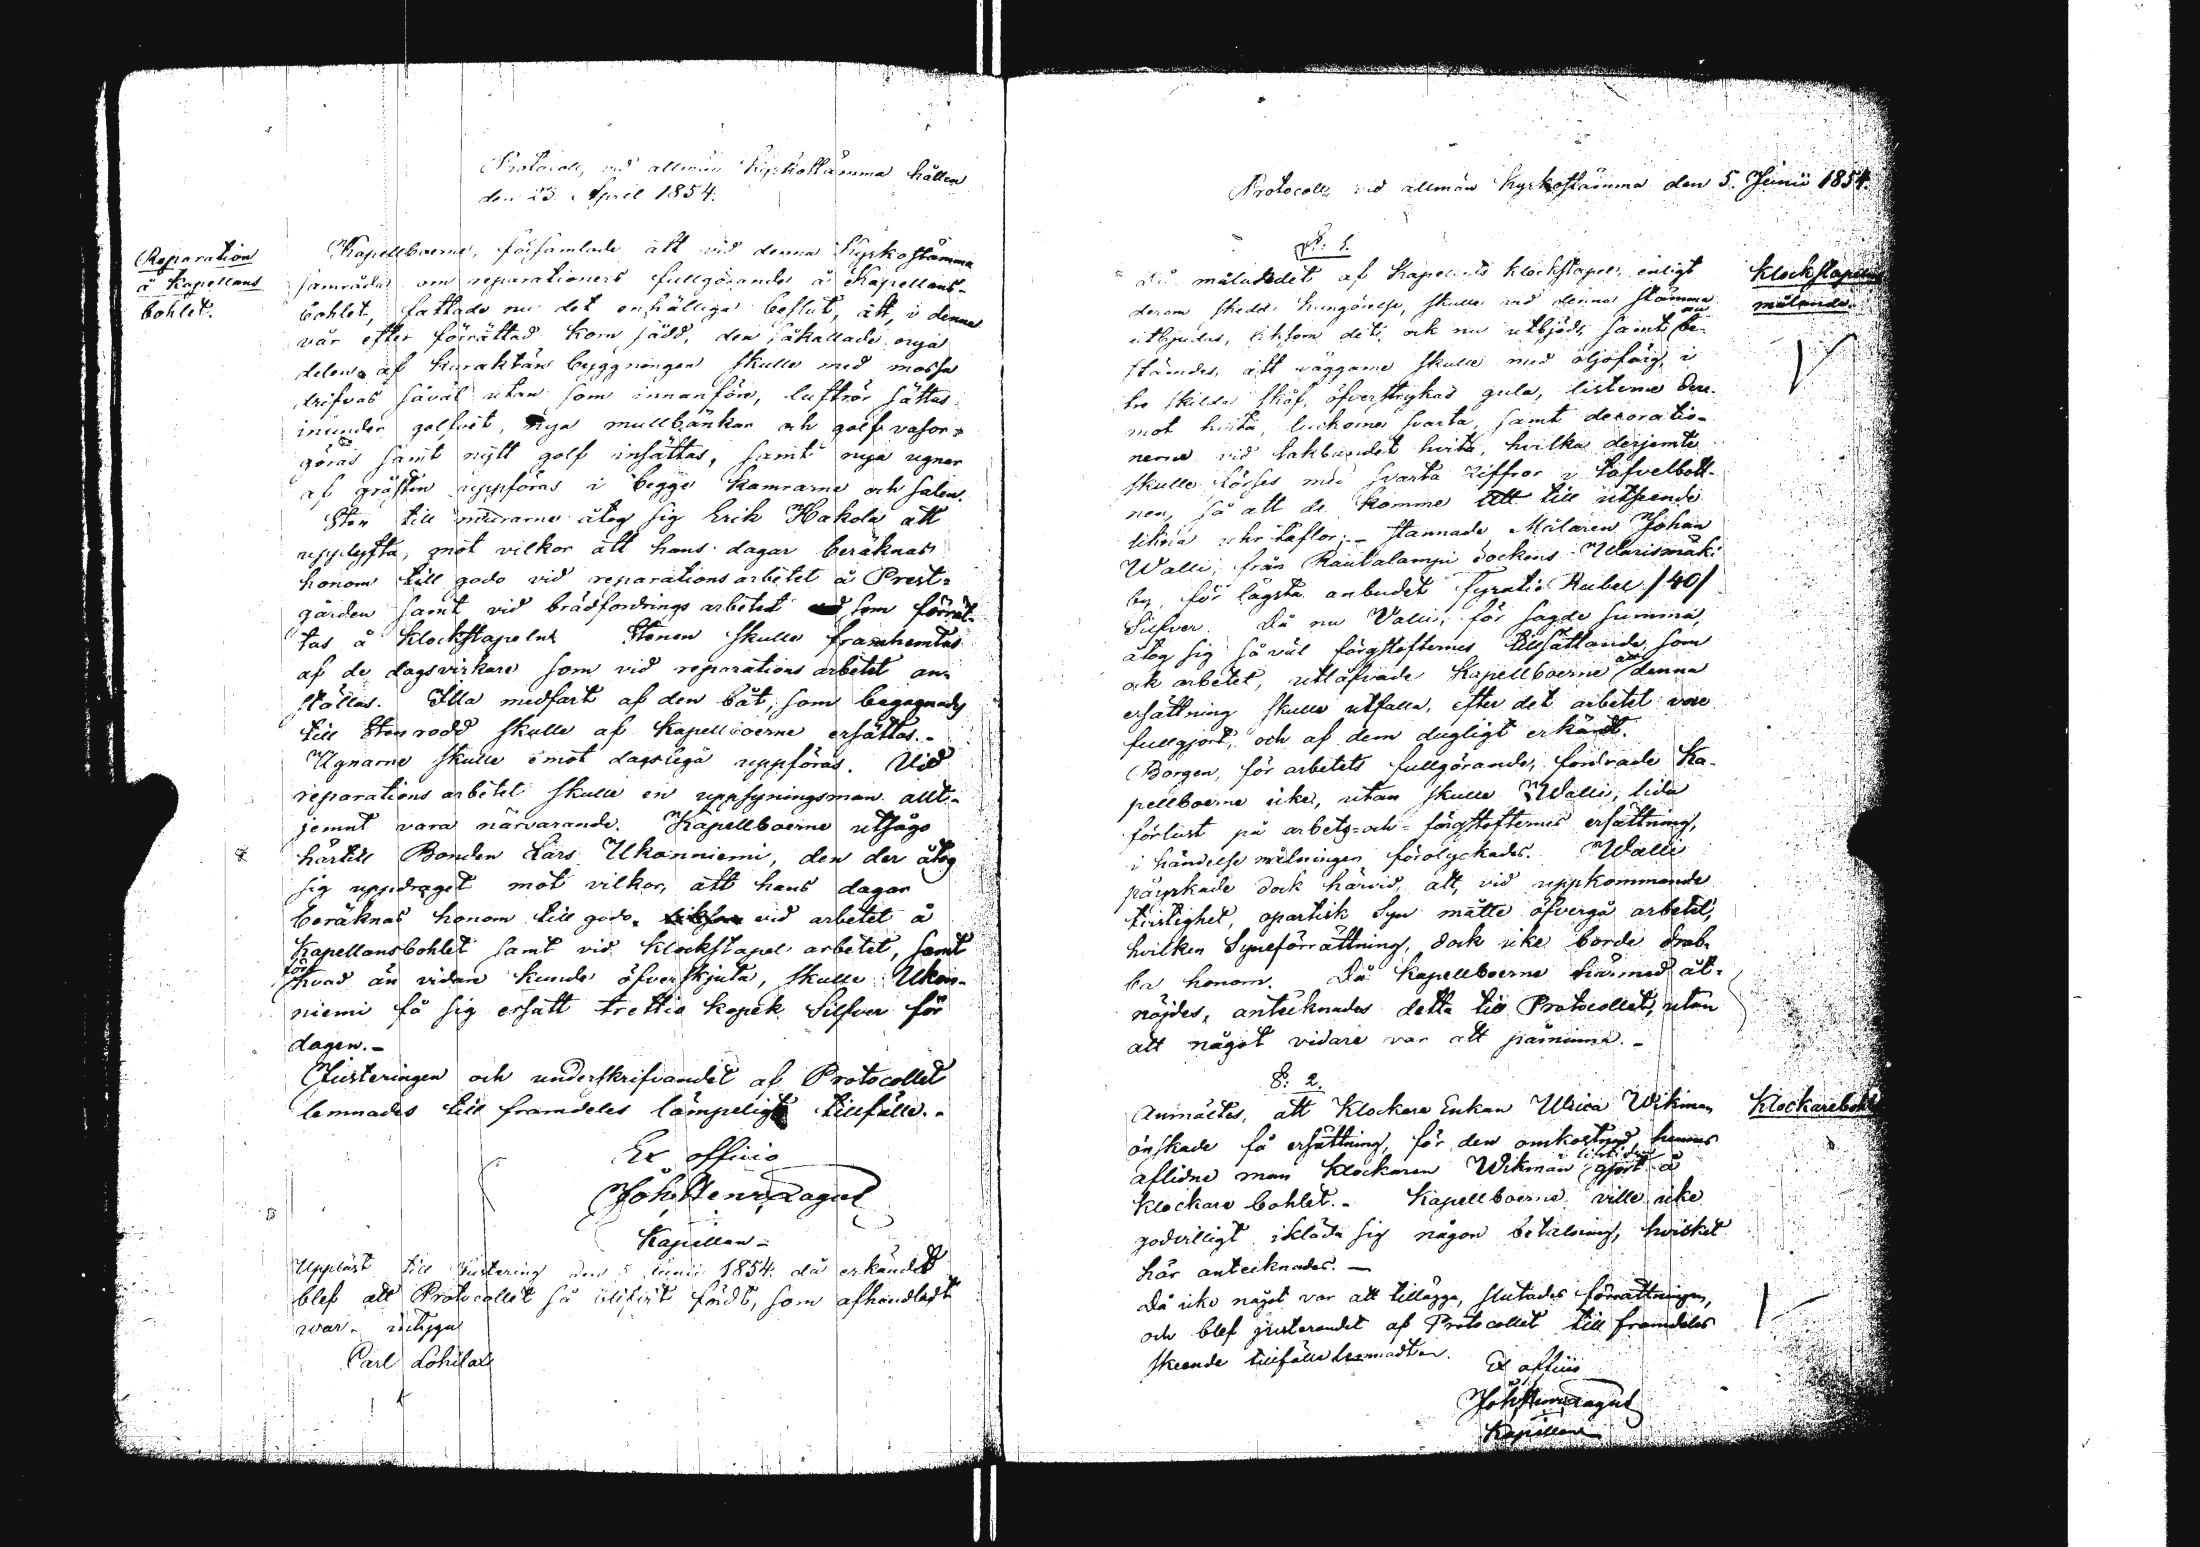 Protocoll, vid allmän Kyrkostämma hållen
den 23 April 1854.
Reparation
å Kapellans
bohlet.
Kapellboerne, församlade att vid denna Kyrkostämma
samråda om reparationers fullgörande å Kapellans-
bohlet, fattade nu det enhälliga beslut, att, i denna
vår efter förrättad korn sådd, den såkallade nya
delen af karaktärs byggningen skulle med mossa
drifvas såväl utan som innanföre, luftrör sättas
inunder golfvet, nya mullbänkar och golf vasor
göras samt nytt golf insättas, samt nya ugnar
af gråsten uppföras i begge kamrarne och salen.
Sten till murarne åtog sig Erik Hakola att
upplyfta, mot vilkor att hans dagar beräknas
honom till godo vid reparationsarbetet å Prest-
gården samt vid brädfordrings arbetet som förrät-
tas å Klockstapeln. Stenen skulle framhemtas
af de dagsvirkare som vid reparations arbetet an-
ställas. Illa medfart af den båt, som begagnades
till Stenrodd skulle af Kapellboerne ersättas.-
Ugnarne skulle emot dagslega uppföras. Vid
reparations arbetet skulle en uppsyningsman allt-
jemnt vara närvarande. Kapellboerne utsågo
härtill Bonden Lars Ukonniemi, den der åtog
sig uppdraget mot vilkor, att hans dagar
beräknas honom till godo, vid arbetet å
Kapellansbohlet samt vid Klockstapel arbetet, samt
för
hvad än vidare kunde öfverskjuta, skulle Ukon-
niemi få sig ersatt trettio kopek Silfver för
dagen.-
Justeringen och underskrifvandet af Protocollet
lemnades till framdeles lämpeligt tillfälle.-
Ex officio
Joh. Henr. Lagus
Kapellan-
Uppläst till justering den 5 Junii 1854. då erkändt
blef att Protocollet så blifvit fördt, som afhandladt
war. intyga
Carl Lohilax
Protocoll, vid allmän Kyrkostämma den 5. Junii 1854.
§: 1.
Klockstapelns
målande.
Då målandet af Kapellets klockstapel, enligt
derom skedd kungörelse, skulle vid denna stämma
utbjudas, liksom det ock nu utbjöds, samt be-
stämdes, att väggarne skulle med oljofärg, i
tre skilda skof, öfverstrykas gula, listerne der-
mot hvita, luckorne svarta, samt decoratio-
nerne vid takbandet hvita, hvilka derjemte
skulle förses med svarta ziffror i tafvelbott-
nen, så att de komme till utseende
likna urtaflor;- stannade Målaren Johan
Walli, från Rautalampi sockens Warismäki
by för lägsta anbudet fyratio Rubel /40/
Silfver. Då nu Walli, för sagde summa,
åtog sig så väl färgstofternes tillsättande, som
ock arbetet, utlåfvade Kapellboerne att denna
ersättning skulle utfalla, efter det arbetet vore
fullgjort, och af dem dugligt erkändt.
Borgen, för arbetets fullgörande, fordrade Ka-
pellboerne icke, utan skulle Walli, lida
förlust på arbets- och färgstofternes ersättning,
i händelse målningen förolyckades. Walli
påyrkade dock härvid, att, vid uppkommande
tvistighet, opartisk Syn måtte öfvergå arbetet,
hvilken Syneförrättning, dock icke borde drab-
ba honom. Då Kapellboerne härmed åt-
nöjdes, antecknades detta till Protocollet, utan
att något vidare var att påminna.-
§: 2.
Klockarebohlet
Anmältes, att Klockare Enkan Ulrica Wikman
önskade få ersättning, för den omkostnad, hennes
aflidne man Klockaren Wikman gjort å
Klockare bohlet.- Kapellboerne ville icke
godvilligt ikläda sig någon betalning, hvilket
här antecknades.-
Då icke något var att tillägga, slutades förrättningen,
och blef justerandet af Protocollet till framdeles
skeende tillfälle lemnadt.
Ex officio
Joh. Henr. Lagus
Kapellan